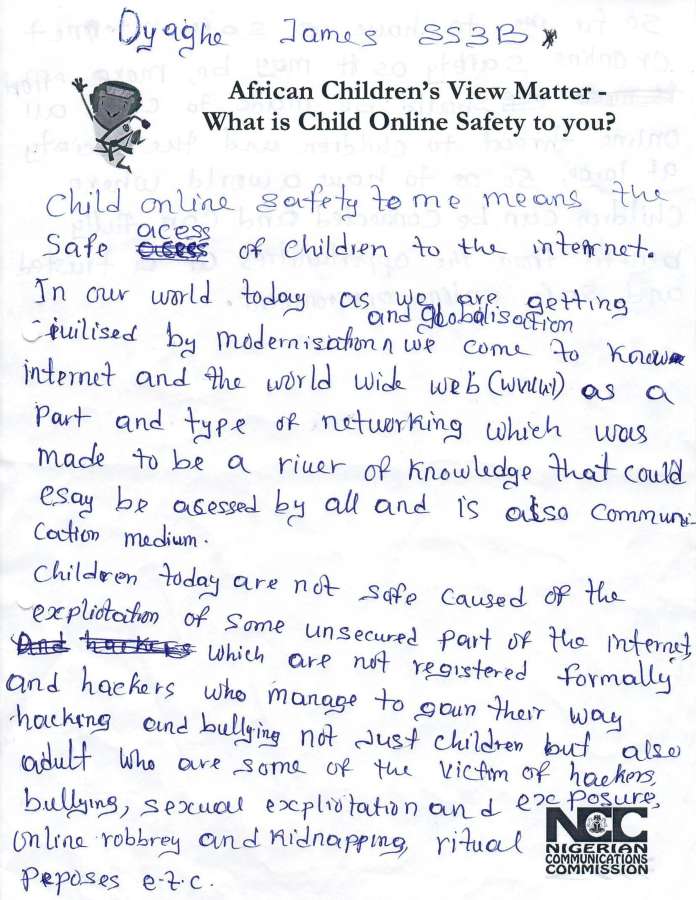 Oyaghe James SS3B
African Children's View Matter -
What is Child Online Safety to you?
Child online safety to me means the
acess
safe acess of children to the internet.
In our world today as we are getting
and globalisaction
by modernisation we come to know
internet and the world wide web (www) as a
part and type of networking which was
made to be a river of knowledge that could
esay be acessed by all and is also communi-
cation medium.
Children today are not safe caused of the
expliotation of some unsecured part of the internet,
And hackers which are not registered formally
and hackers who manage to gaun their way
hacking and bullying not just children but also
adult who are some of the victim of hackers,
bullying, sexual expliotation and exposure,
online robbrey and kidnapping, ritual
peposes e.t.c.
NCC
NIGERIAN
COMMUNICATIONS
COMMISSION